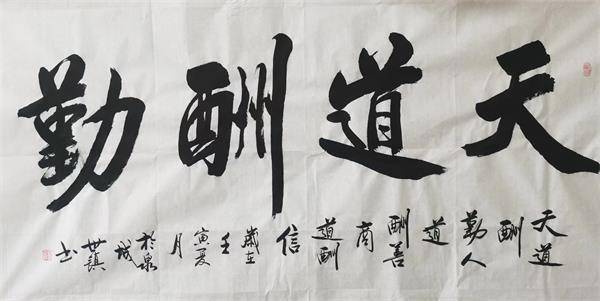 天道酬勤
天道酬勤人道酬善商道酬信歲在壬寅夏月於泉城世镇书